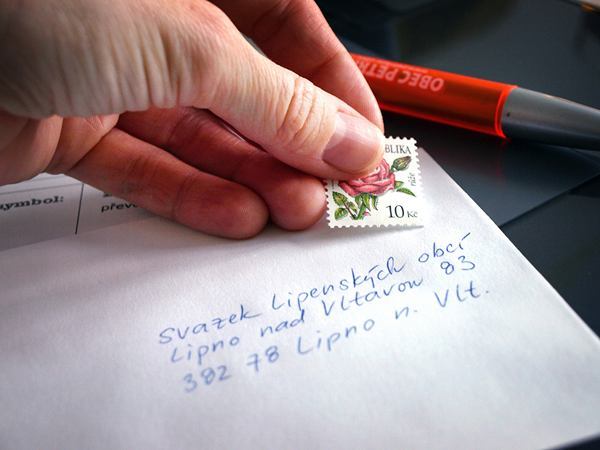 OBEC PETŘ
BLIKA
růže
10 Kč
symbol:
převo
Svazek lipenských obcí
Lipno nad Vltavou 83
382 78 Lipno n. Vlt.